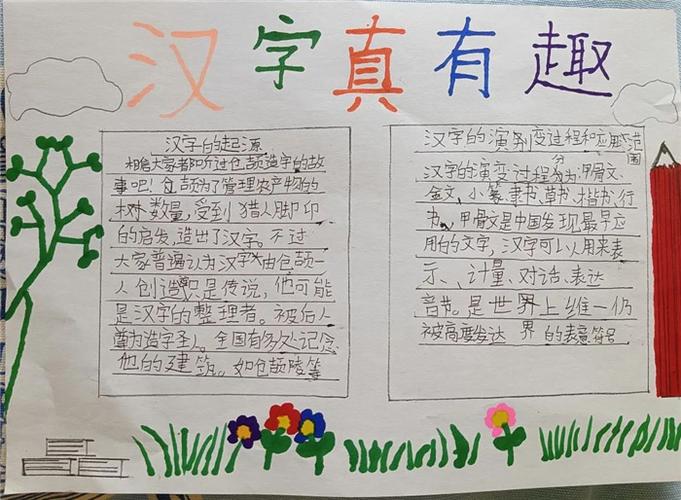 汉字真有趣
汉字的起源
相信大家都听过仓颉造字的故
事吧！仓颉为了管理农产物的
树木数量，受到猎人脚印
的启发，造出了汉字。不过
大家普遍认为汉字由仓颉一
人创造只是传说，他可能
是汉字的整理者。被后人
尊为造字圣人。全国有多处记念
他的建筑。如仓颉陵等
汉字的演变过程和应用范围
汉字的演变过程分为：甲骨文、
金文，小篆、隶书、草书、楷书、行
书。甲骨文是中国发现最早应
用的文字，汉字可以用来表
示、计量、对话、表达
音节。是世界上维一仍
被高度发达 的表意符号